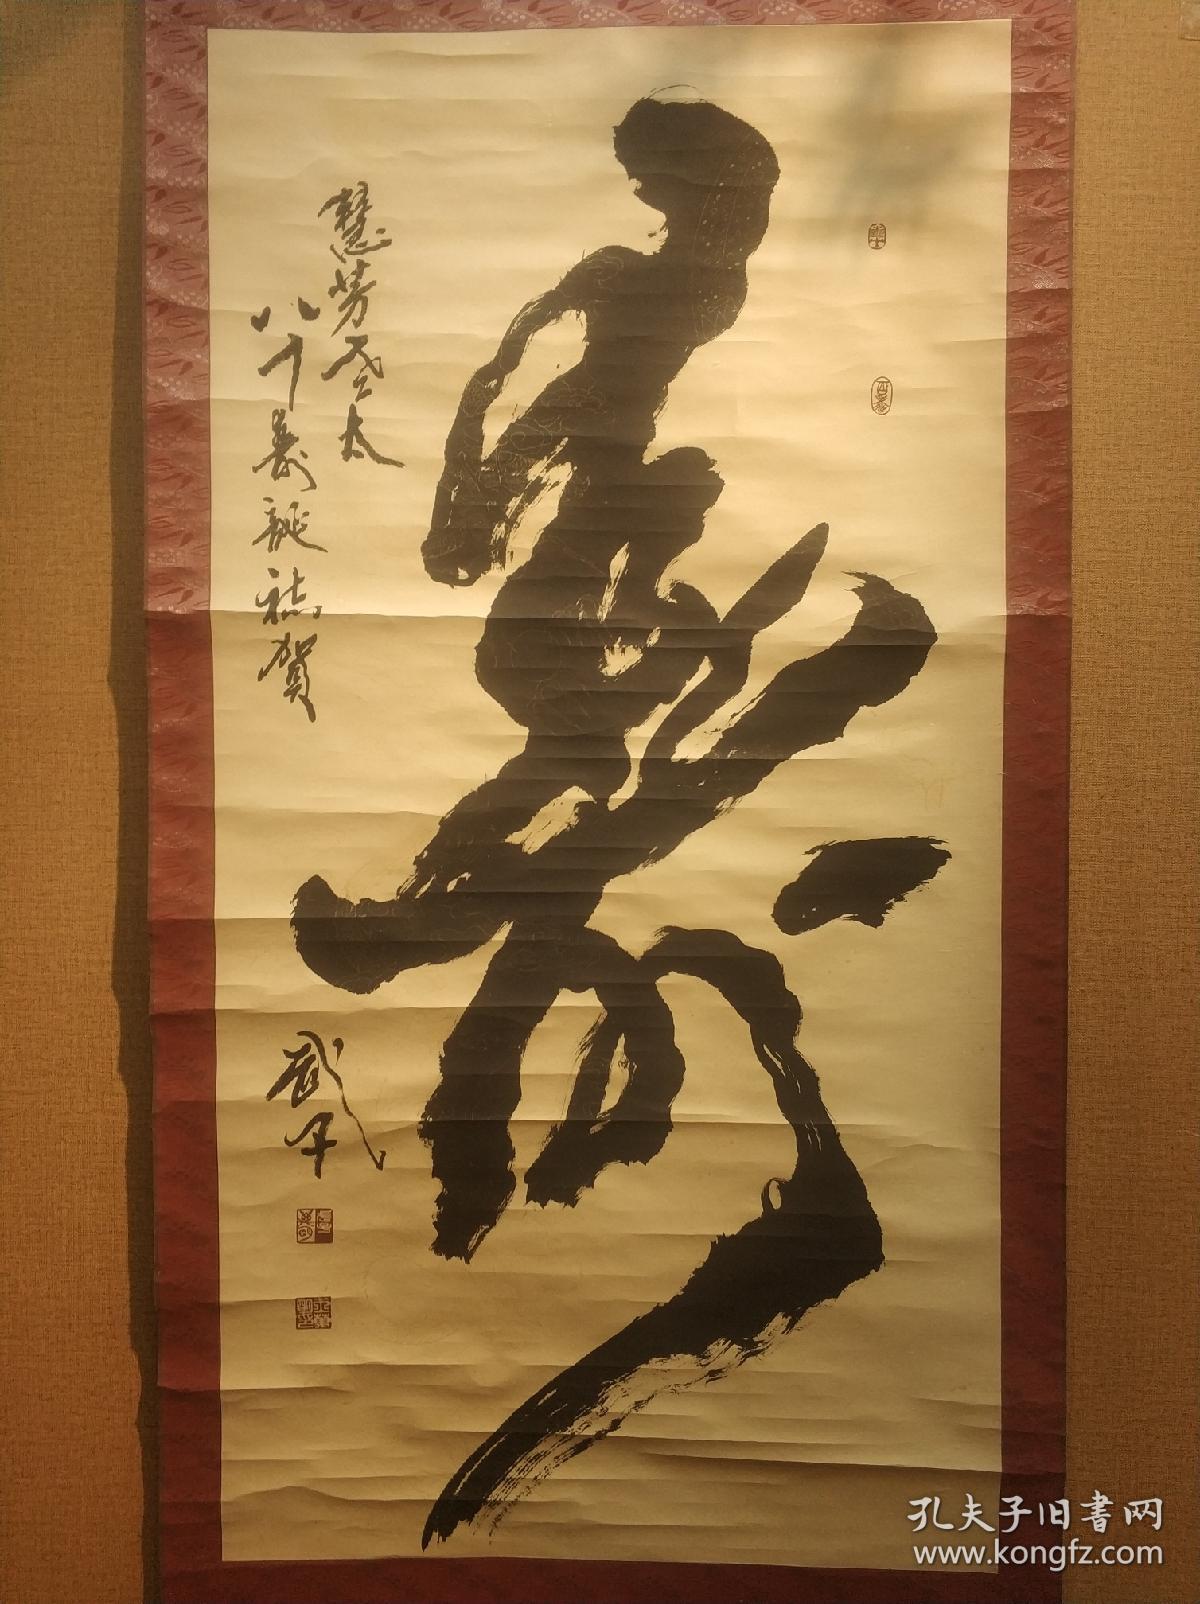 壽
慧芳老太太
八十壽誕誌賀
武子
孔夫子旧书网
www.kongfz.com